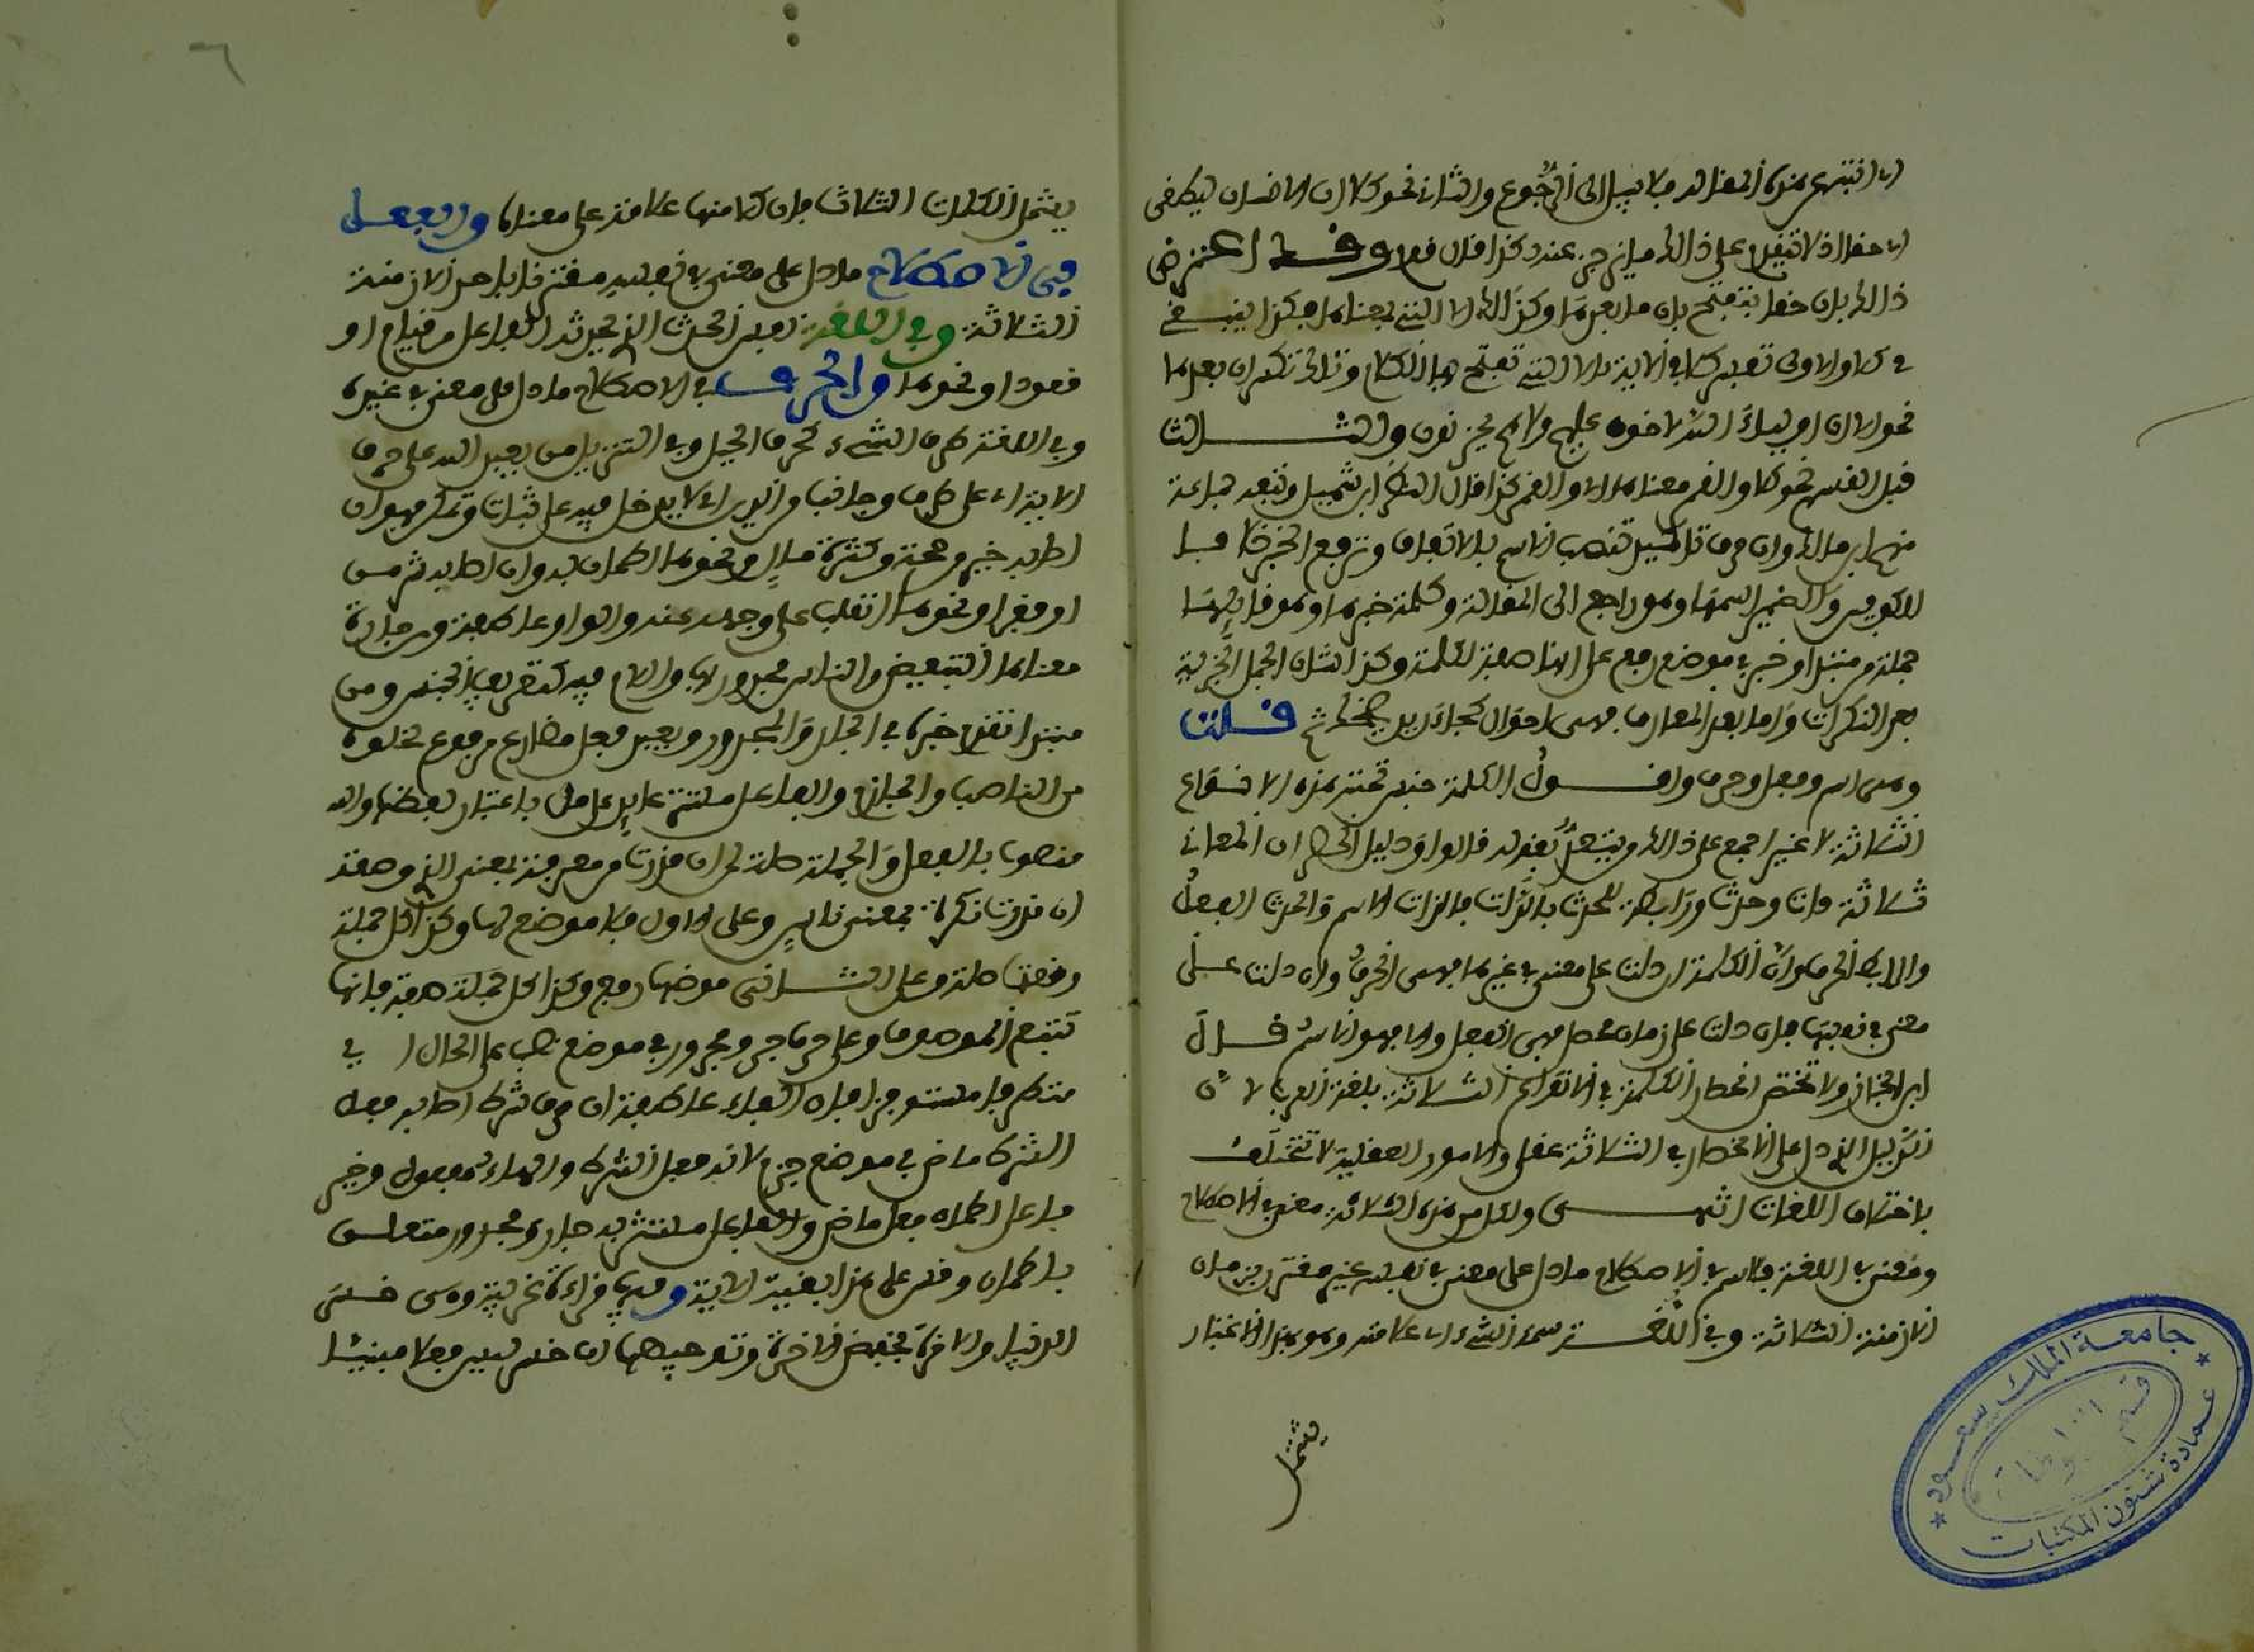 اي انته عن هذه المقالة فلا سبيل الى الرجوع والثاني نحو كلا ان الانسان ليطغى
اي حقا اذ لم يتقدم على ذلك ما يزجر عنه كذا قال قوم وقد اعترض
ذلك بان حقا تفتح بان ما بعدها وكذلك اما التي بمعناها فكذا ينبغي
في كلا والاولى تفسير كلا في الاية بالا التي تفتح بها الكلام وتلك تكسر ان بعدها
نحو الا ان اولياء الله لا خوف عليهم ولا هم يحزنون والثالث
قبل القسم نحو كلا والقمر معناه اي والقمر كذا قال النضر ابن شميل وتبعه جماعة
منهم ابن مالك وان حرف تاكيد تنصب الاسم بالاتفاق وترفع الخبر خلافا
للكوفيين والضمير اسمها وهو راجع الى المقالة وكلمة خبرها وهو قائلها
جملة من مبتدا وخبر في موضع رفع على انها صفة لكلمة وكذا شان الجمل الخبرية
بعد النكرات واما بعد المعارف فهي احوال كجاء زيد يضحك ثم قلت
وهي اسم وفعل وحرف واقول الكلمة جنس تحته هذه الانواع
الثلاثة لا غير اجمع على ذلك من يعتد بقوله قالوا ودليل الحصر ان المعاني
ثلاثة ذات وحدث ورابطة للحدث بالذات فالذات الاسم والحدث الفعل
والرابطة الحرف وان الكلمة ان دلت على معنى في غيرها فهي الحرف وان دلت على
معنى في نفسها فان دلت على زمان محصل فهي الفعل والا فهو الاسم قال
ابن الخباز ولا تختص انحصار الكلمة في الانواع الثلاثة بلغة العرب لان
الدليل الذي دل على الانحصار في الثلاثة عقلي والامور العقلية لا تختلف
باختلاف اللغات انتهى ولكل من هذه الثلاثة معنى في الاصطلاح
ومعنى في اللغة فالاسم في الاصطلاح ما دل على معنى في نفسه غير مقترن بزمان
الازمنة الثلاثة وفي اللغة سمة الشيء اي علامته وهو بهذا الاعتبار
يشمل
يشمل الكلمات الثلاث فان كلا منها علامة على معناه والفعل
في الاصطلاح ما دل على معنى في نفسه مقترنا باحد الازمنة
الثلاثة وفي اللغة نفس الحدث الذي يحدثه الفاعل من قيام او
قعود او نحوهما والحرف في الاصطلاح ما دل على معنى في غيره
وفي اللغة طرف الشيء كحرف الجبل وفي التنزيل ومن الناس من يعبد الله على حرف
الاية اي على طرف وجانب من الدين اي لا يدخل فيه على ثبات وتمكن فهو ان
اصابه خير من صحة وكثرة مال ونحوهما اطمان به وان اصابه شر من
او فقر او نحوهما انقلب على وجهه عنه والواو عاطفة ومن جارة
معناها التبعيض والناس مجرور بها واللام فيه لتعريف الجنس ومن
مبتدا تقدم خبره في الجار والمجرور ويعبد فعل مضارع مرفوع لخلوه
من الناصب والجازم والفاعل مستتر عايد على من باعتبار لفظها والله
منصوب بالفعل والجملة صلة لمن ان قدرت من معرفة بمعنى الذي وصفة
ان قدرت نكرة بمعنى ناس وعلى الاول فلا موضع لها وكذا كل جملة
وقعت صلة وعلى الثاني موضعها رفع وكذا كل جملة صفة فانها
تتبع الموصوف وعلى حرف جر ومجرور في موضع نصب على الحال اي
متطرفا مستوفزا فان الفاء عاطفة ان حرف شرط اصابه فعل
الشرط ماض في موضع جزم لانه فعل الشرط والهاء مفعول وخير
فاعل اطمان فعل ماض والفاعل مستتر به جار ومجرور متعلق
باطمان وقس على هذا بقية الاية وفيها قراءة غريبة وهي خسر
الدنيا والاخرة بخفض الاخرة وتوجيهها ان خسر ليس فعلا مبنيا
جامعة الملك سعود
عمادة شئون المكتبات
قسم المخطوطات